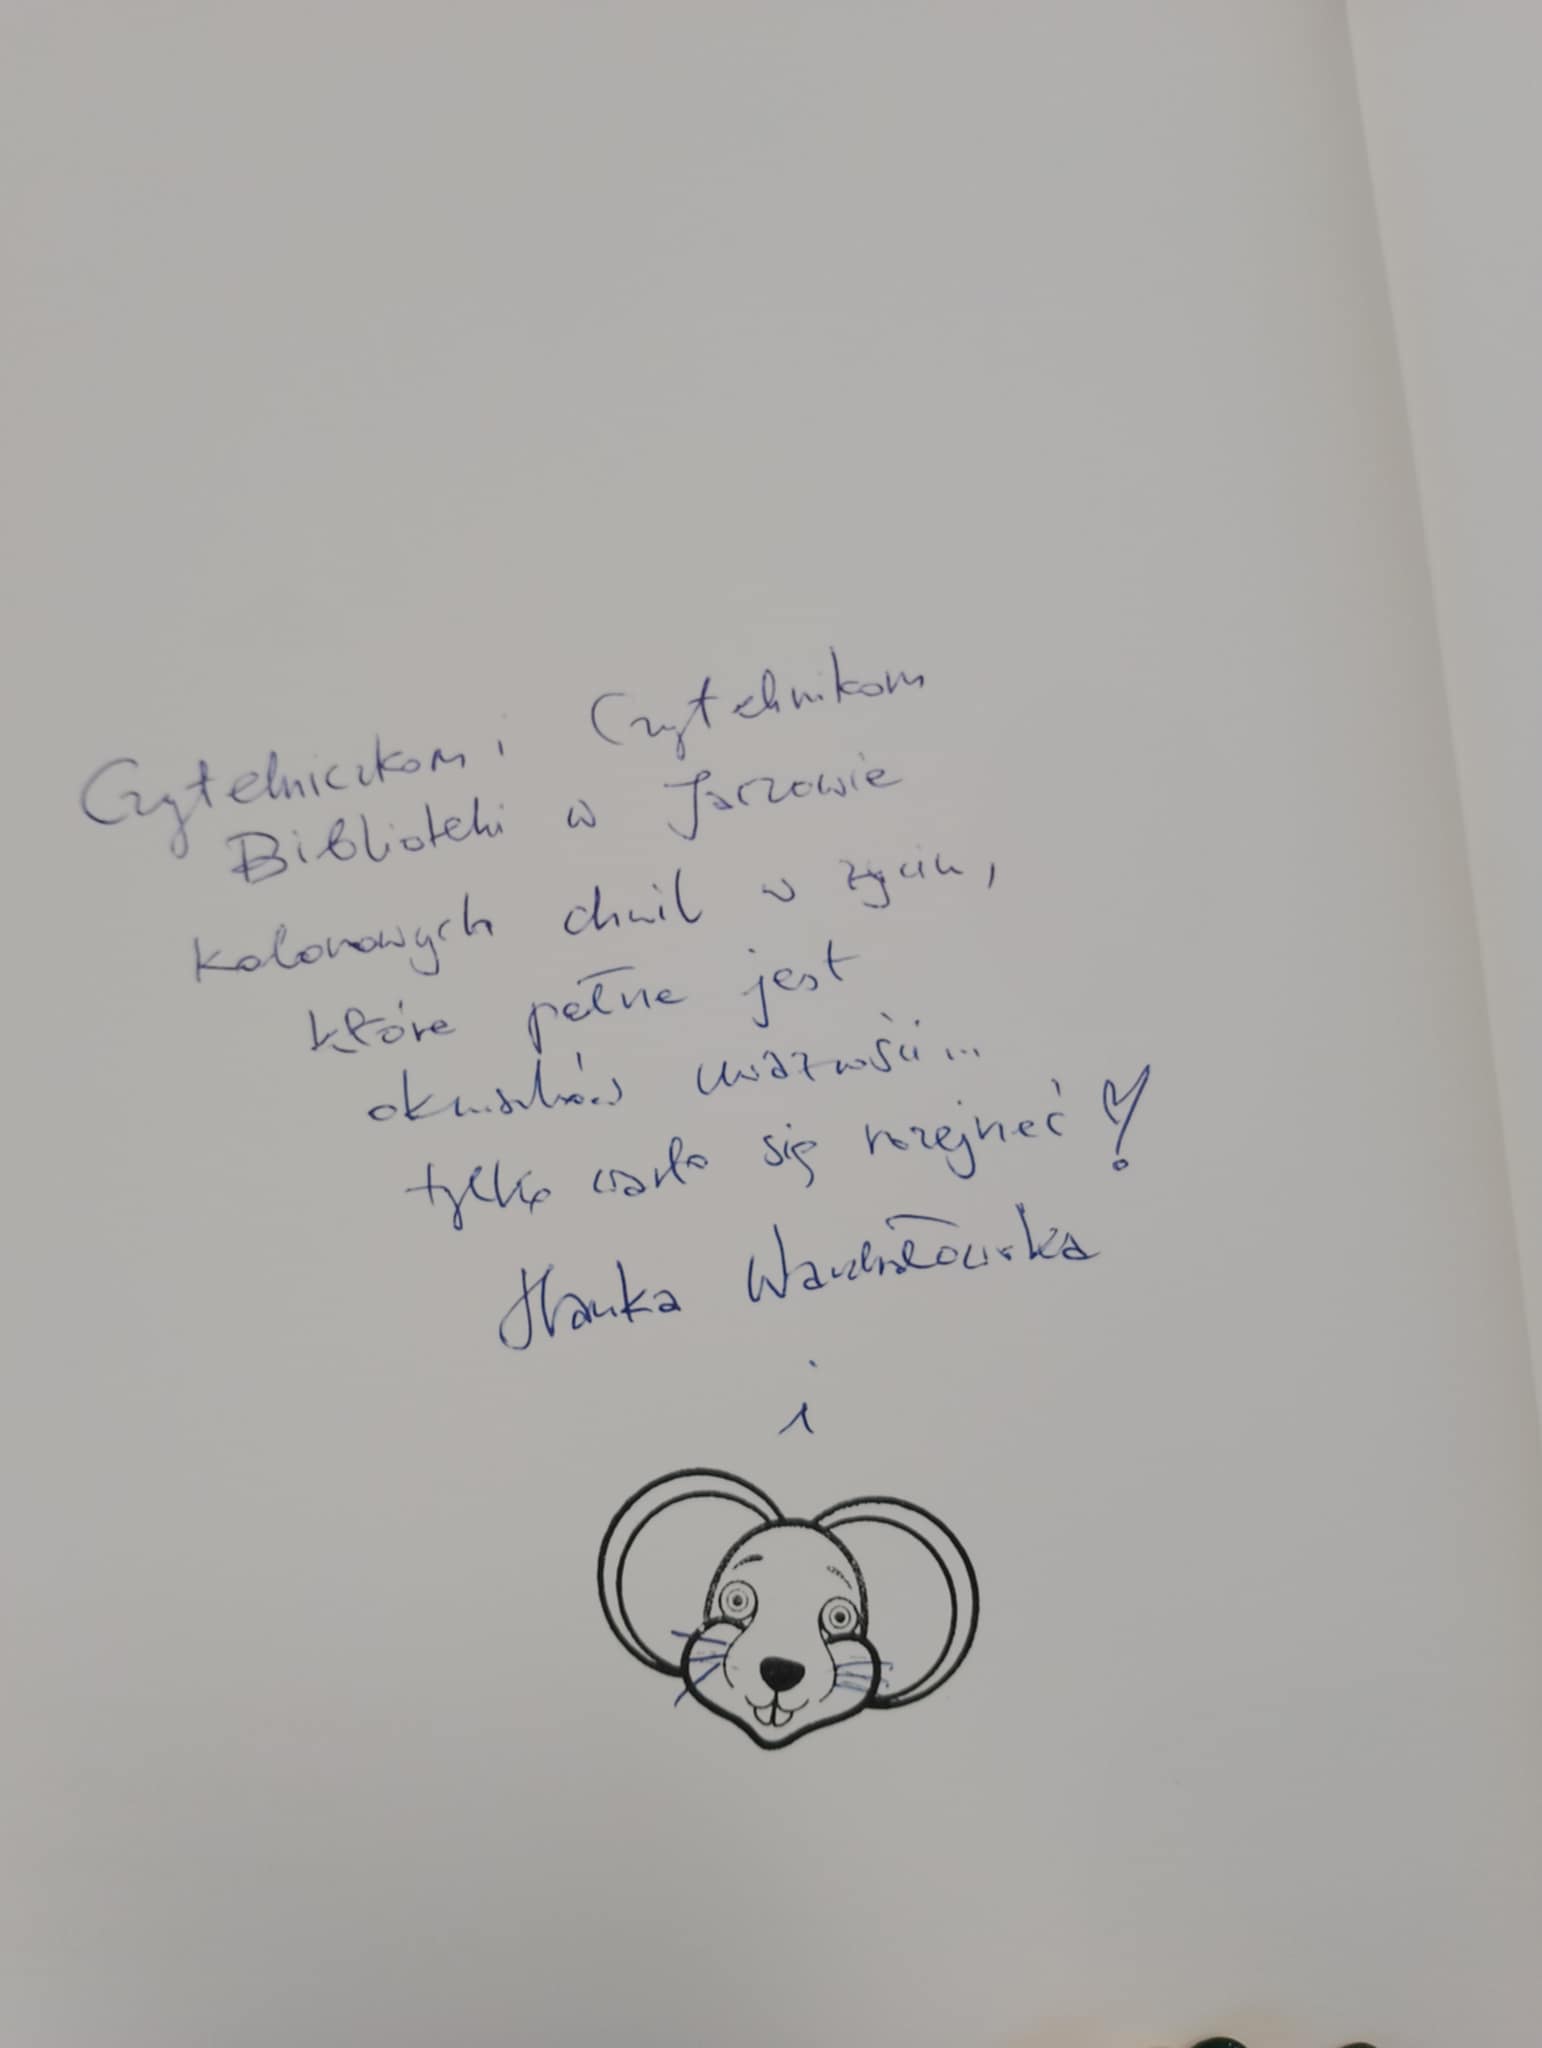 Czytelniczkom i Czytelnikom
Biblioteki w Jarzowie
kolorowych chwil w życiu,
które pełne jest
okruszków uważności...
tylko warto się rozejrzeć!
Hanka
i